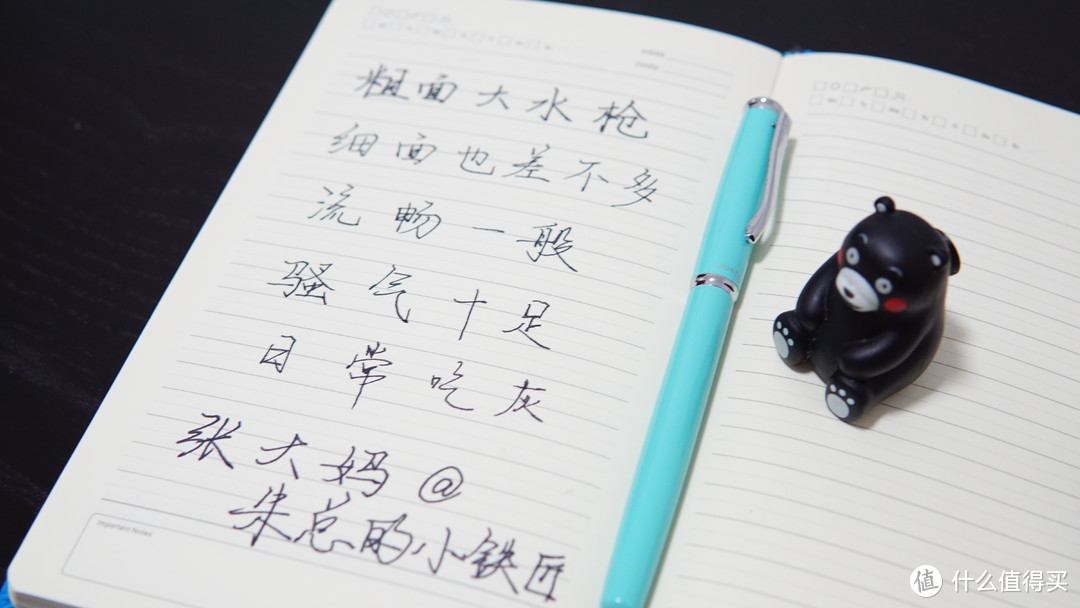 粗面大水枪
细面也差不多
流畅一般
骚气十足
日常吃灰
张大妈@
朱总的小铁匠
Important Notes
值 什么值得买